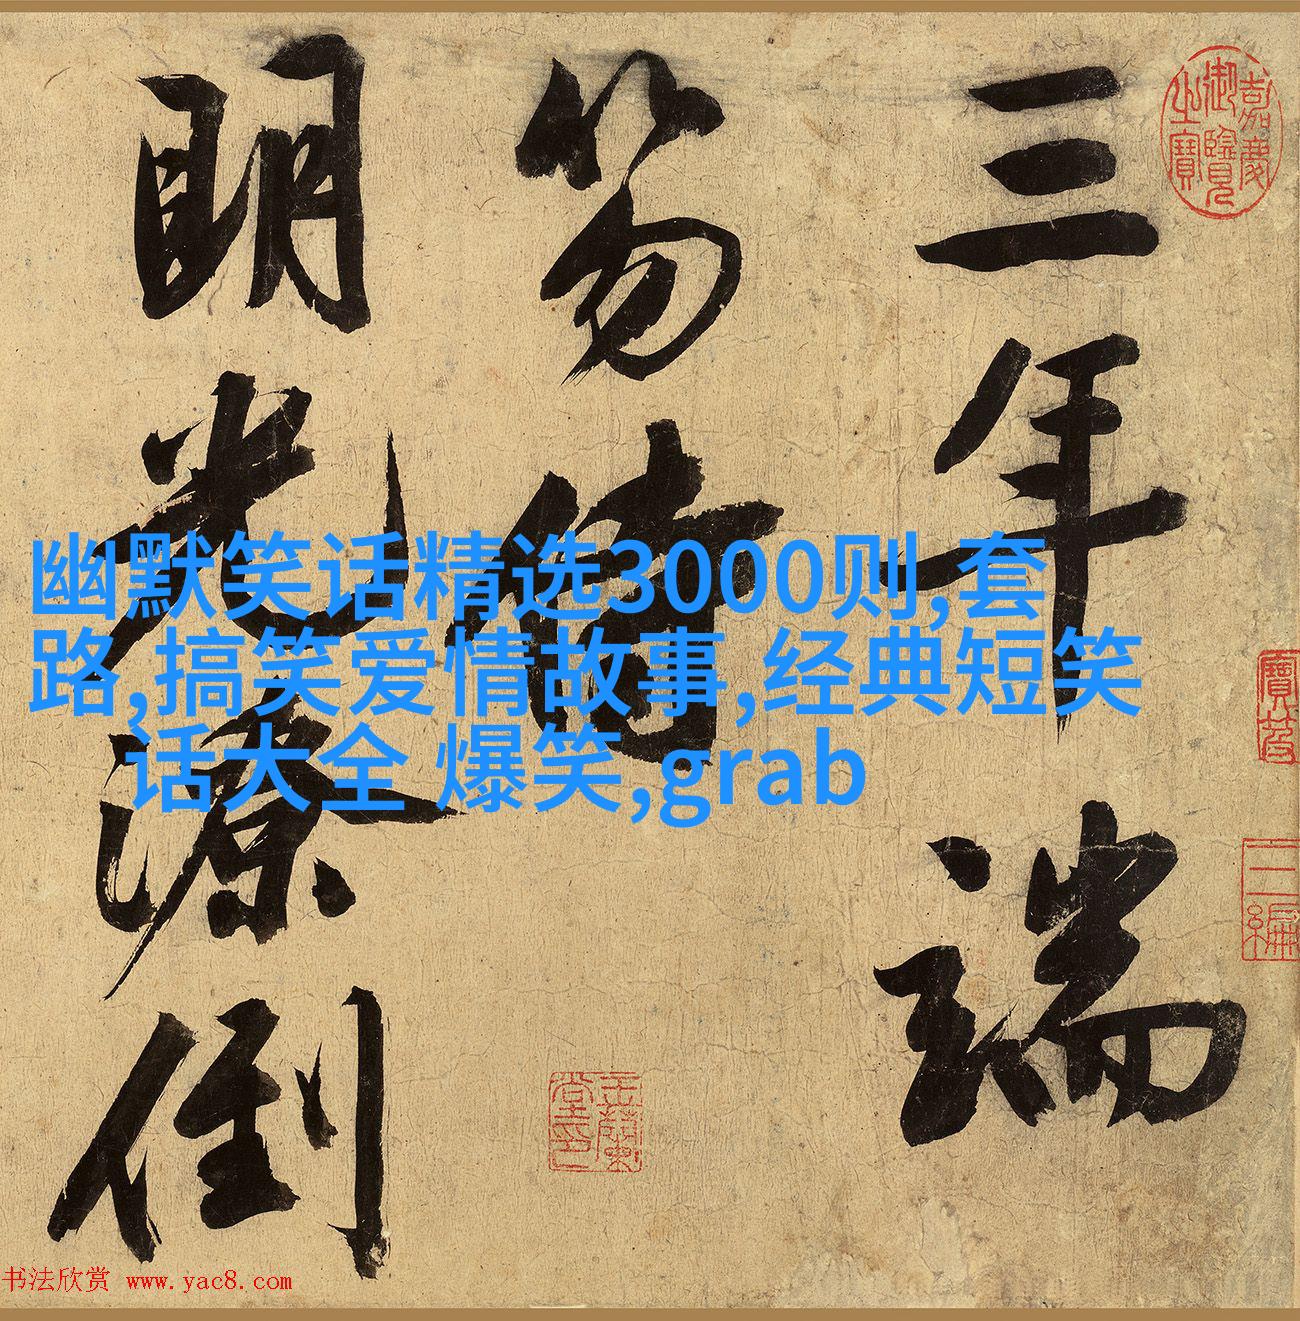 三年端
笏侍
明光潦倒
嘉慶
御覽
之寶
寶笈
幽默笑话精选3000则,套
路,搞笑爱情故事,经典短笑
话大全 爆笑,grab
书法欣赏 www.yac8.com